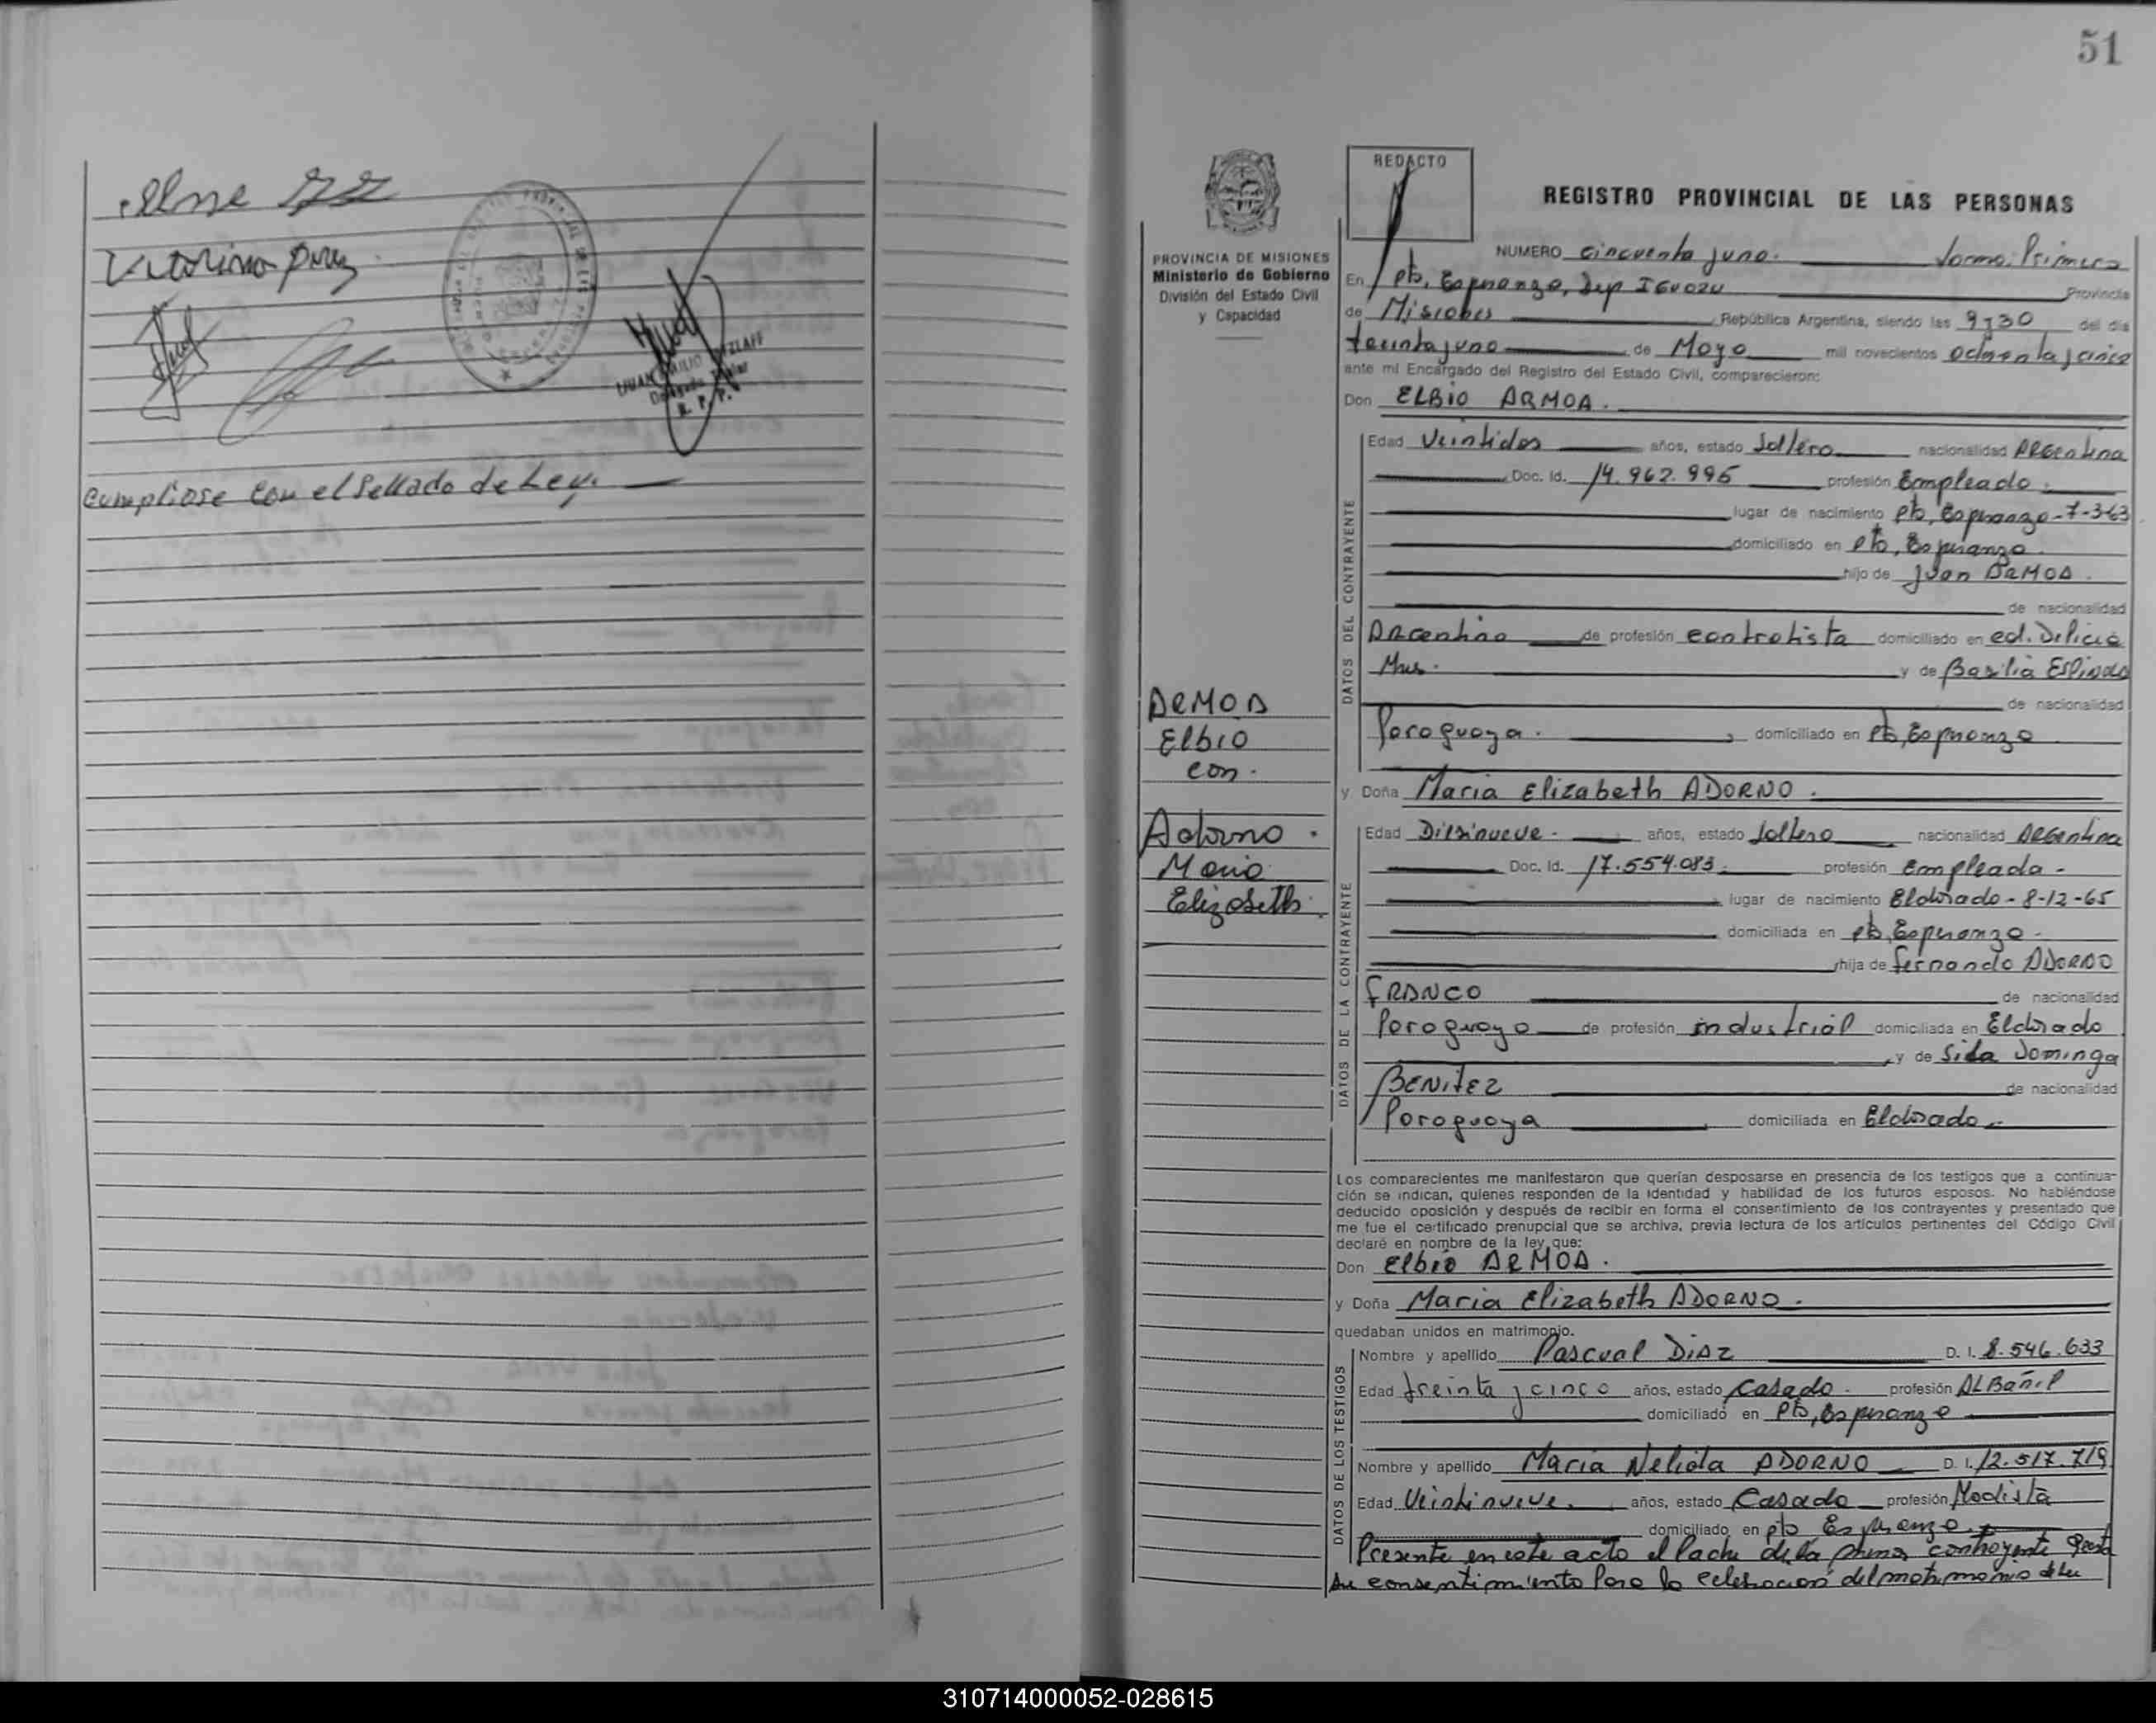 Vitorino
Cumpliose con el Sellado de Ley.
51
REDACTO
REGISTRO PROVINCIAL DE LAS PERSONAS
PROVINCIA DE MISIONES
Ministerio de Gobierno
División del Estado Civil
y Capacidad
NUMERO cincuenta y uno. Tomo: Primero
En Pto, Esperanza, Dep IGUAZU Provincia
de Misiones República Argentina, siendo las 9y30 del día
treinta y uno de Mayo mil novecientos ochenta y cinco
ante mí Encargado del Registro del Estado Civil, comparecieron:
Don ELBIO ARMOA.
DATOS DEL CONTRAYENTE
Edad Veintidos años, estado Soltero nacionalidad Argentina
Doc. Id. 14.962.995 profesión Empleado.
lugar de nacimiento Pto, Esperanza-7-3-63
domiciliado en Pto, Esperanza.
hijo de Juan ARMOA.
de nacionalidad
Argentino de profesión contratista domiciliado en col. Delicia
Mnes. y de Basilia Espinola
de nacionalidad
Paraguaya. domiciliado en Pto, Esperanza
ARMOA
Elbio
con.
Adorno.
Maria
Elizabeth.
y Doña Maria Elizabeth ADORNO.
DATOS DE LA CONTRAYENTE
Edad Diesinueve. años, estado Soltera nacionalidad Argentina
Doc. Id. 17.554.083. profesión Empleada-
lugar de nacimiento Eldorado-8-12-65
domiciliada en Pto, Esperanza.
hija de Fernando ADORNO
FRANCO de nacionalidad
Paraguayo de profesión industrial domiciliada en Eldorado
y de Sida Dominga
BENITEZ de nacionalidad
Paraguaya domiciliada en Eldorado.
Los comparecientes me manifestaron que querían desposarse en presencia de los testigos que a continua-
ción se indican, quienes responden de la identidad y habilidad de los futuros esposos. No habiéndose
deducido oposición y después de recibir en forma el consentimiento de los contrayentes y presentado que
me fue el certificado prenupcial que se archiva, previa lectura de los artículos pertinentes del Código Civil
declaré en nombre de la ley que:
Don Elbio ARMOA.
y Doña Maria Elizabeth ADORNO.
quedaban unidos en matrimonio.
DATOS DE LOS TESTIGOS
Nombre y apellido Pascual Diaz D. I. 8.546.633
Edad treinta y cinco años, estado Casado. profesión Albañil
domiciliado en Pto, Esperanza
Nombre y apellido Maria Nelida ADORNO D. I. 12.517.719
Edad Veintinueve. años, estado Casada profesión Modista
domiciliado en Pto Esperanza.
Presente en este acto el Padre de la contrayente Presta
su consentimiento Para la celebracion del matrimonio de su
310714000052-028615